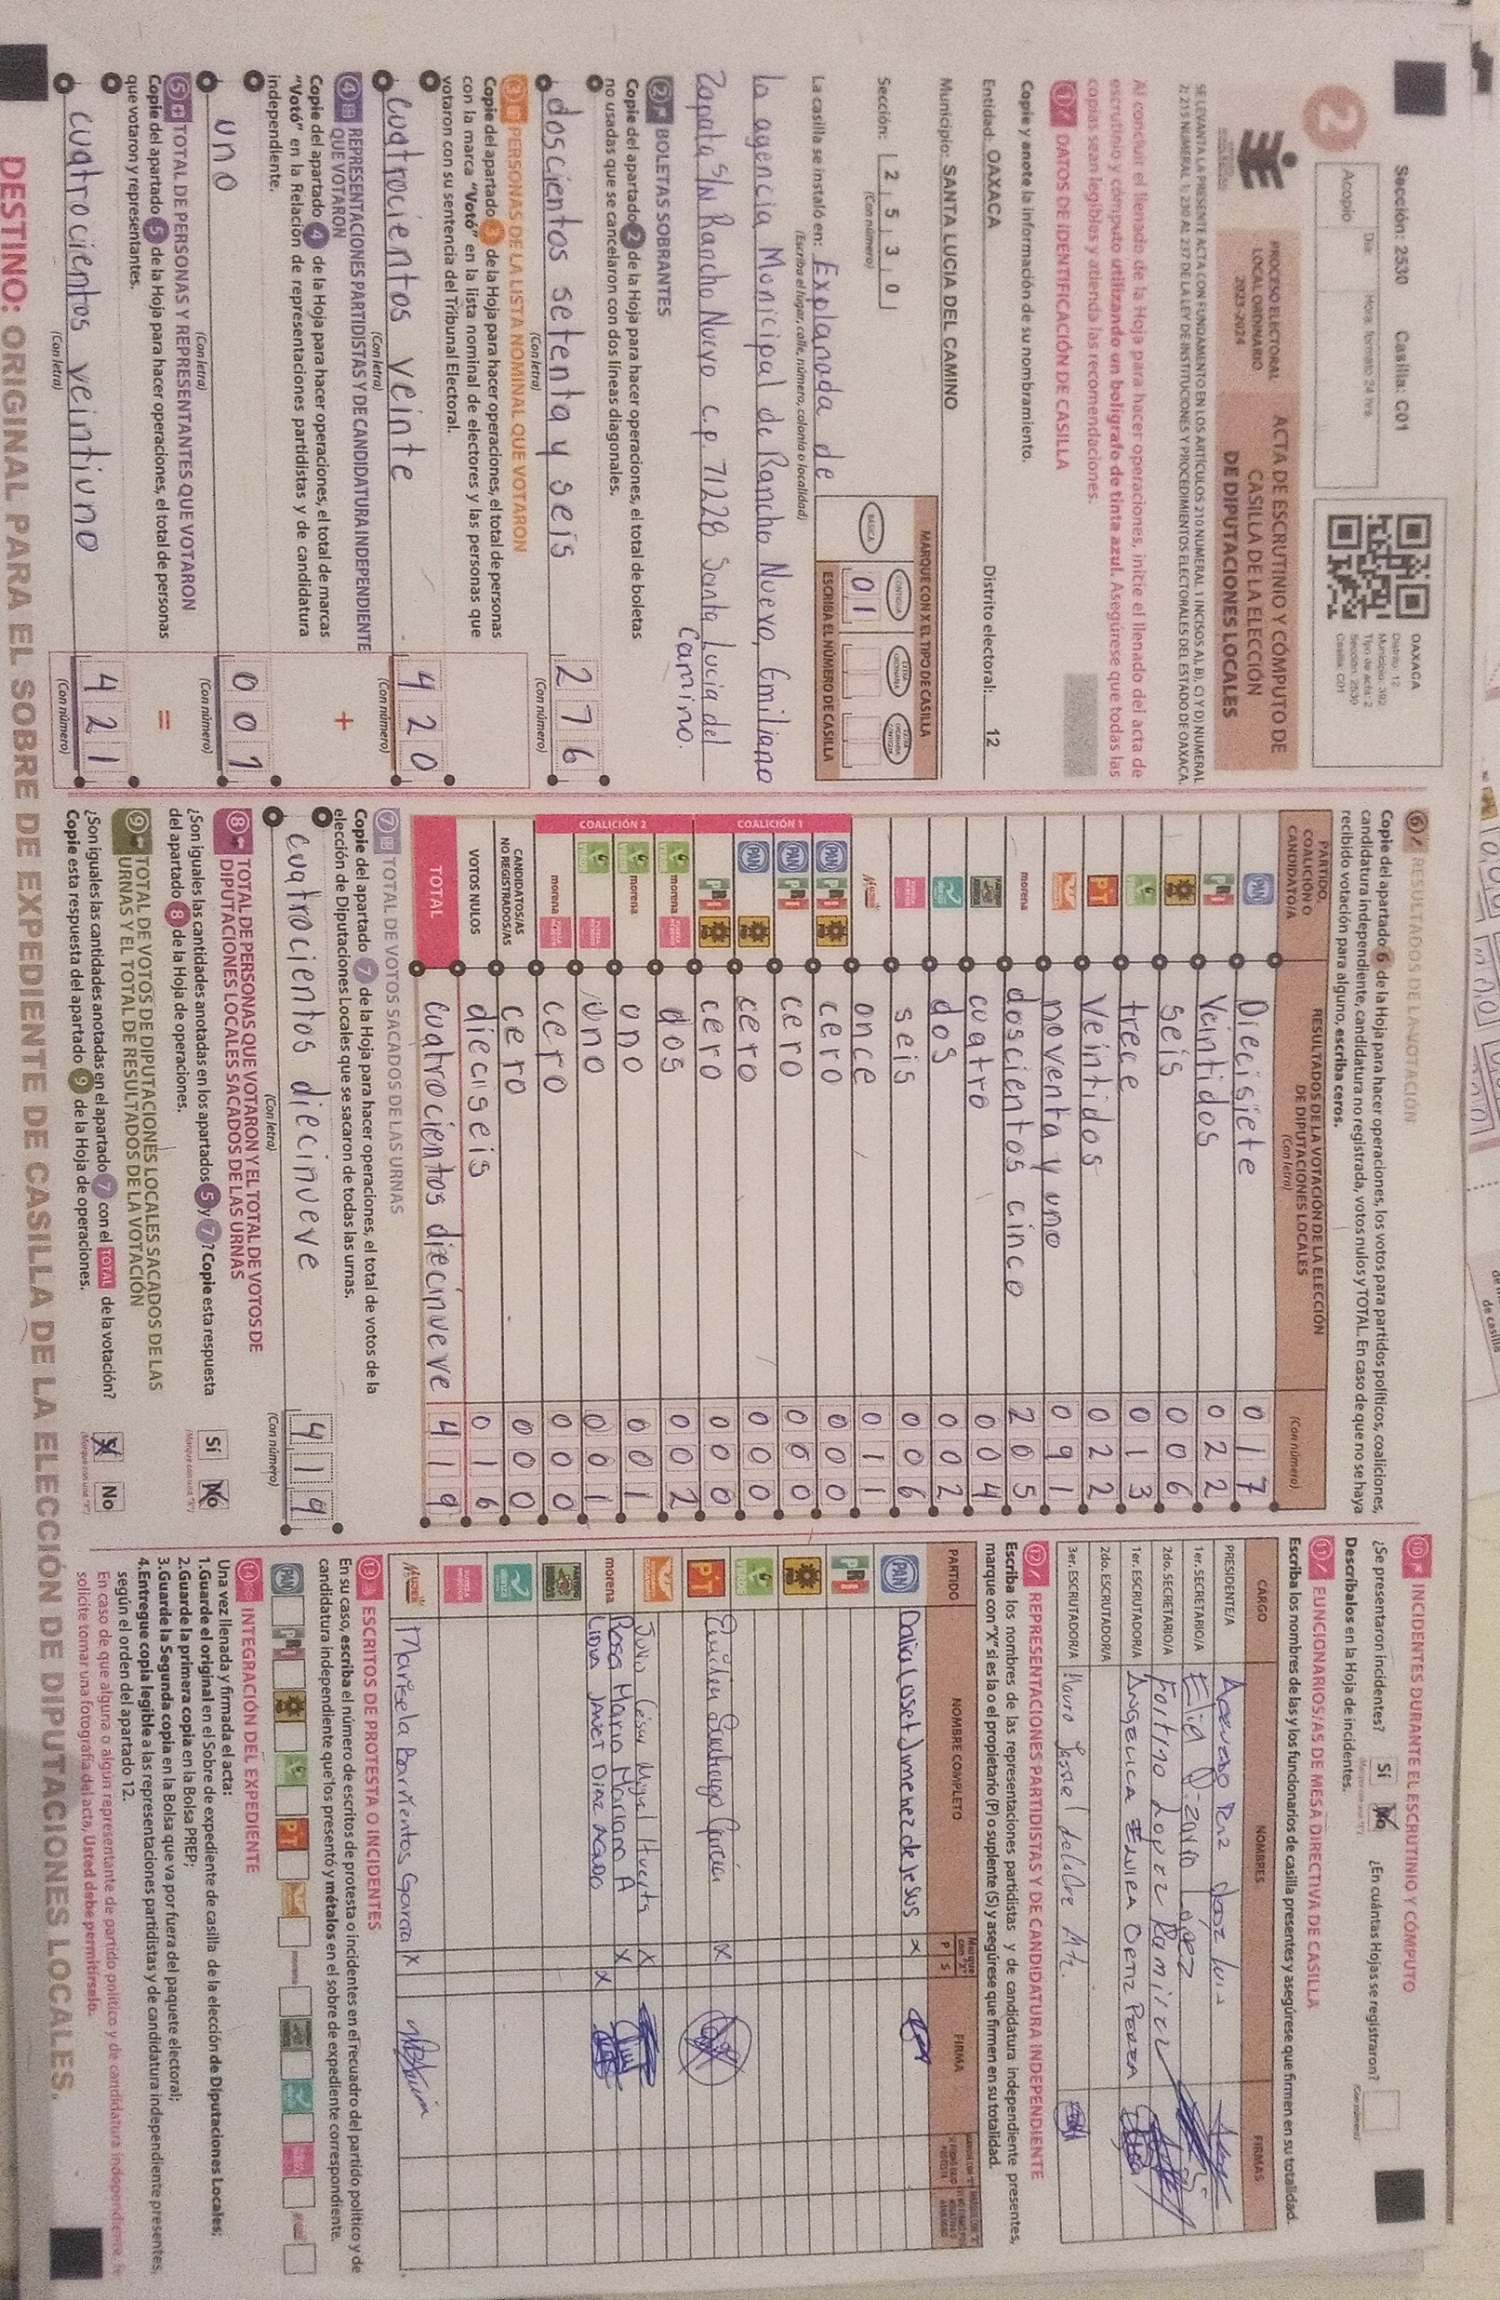 Sección: 2530 Casilla: C01
2
Acopio
Día:
Hora: formato 24 hrs.
OAXACA
Distrito: 12
Municipio: 392
Tipo de acta: 2
Sección: 2530
Casilla: C01
PROCESO ELECTORAL
LOCAL ORDINARIO
2023-2024
ACTA DE ESCRUTINIO Y CÓMPUTO DE
CASILLA DE LA ELECCIÓN
DE DIPUTACIONES LOCALES
SE LEVANTA LA PRESENTE ACTA CON FUNDAMENTO EN LOS ARTÍCULOS 210 NUMERAL 1 INCISOS A), B), C) Y D) NUMERAL
2; 215 NUMERAL 1; 230 AL 237 DE LA LEY DE INSTITUCIONES Y PROCEDIMIENTOS ELECTORALES DEL ESTADO DE OAXACA.
Al concluir el llenado de la Hoja para hacer operaciones, inicie el llenado del acta de
escrutinio y cómputo utilizando un bolígrafo de tinta azul. Asegúrese que todas las
copias sean legibles y atienda las recomendaciones.
1 DATOS DE IDENTIFICACIÓN DE CASILLA
Copie y anote la información de su nombramiento.
Entidad: OAXACA Distrito electoral: 12
Municipio: SANTA LUCIA DEL CAMINO
Sección: 2 5 3 0
(Con número)
MARQUE CON X EL TIPO DE CASILLA
BÁSICA
CONTIGUA
ESCRIBA EL NÚMERO DE CASILLA
0 1
La casilla se instaló en: Explanada de
(Escriba el lugar, calle, número, colonia o localidad)
la agencia Municipal de Rancho Nuevo, Emiliano
Zapata S/N Rancho Nuevo C.P. 71228 Santa Lucia del
Camino.
2 BOLETAS SOBRANTES
Copie del apartado 2 de la Hoja para hacer operaciones, el total de boletas
no usadas que se cancelaron con dos líneas diagonales.
doscientos setenta y seis 2 7 6
(Con letra) (Con número)
3 PERSONAS DE LA LISTA NOMINAL QUE VOTARON
Copie del apartado 3 de la Hoja para hacer operaciones, el total de personas
con la marca “Votó” en la lista nominal de electores y las personas que
votaron con su sentencia del Tribunal Electoral.
cuatrocientos veinte 4 2 0
(Con letra) (Con número)
4 REPRESENTACIONES PARTIDISTAS Y DE CANDIDATURA INDEPENDIENTE
QUE VOTARON
Copie del apartado 4 de la Hoja para hacer operaciones, el total de marcas
“Votó” en la Relación de representaciones partidistas y de candidatura
independiente.
+
uno 0 0 1
(Con letra) (Con número)
5 TOTAL DE PERSONAS Y REPRESENTANTES QUE VOTARON
Copie del apartado 5 de la Hoja para hacer operaciones, el total de personas
que votaron y representantes.
=
cuatrocientos veintiuno 4 2 1
(Con letra) (Con número)
6 RESULTADOS DE LA VOTACIÓN
Copie del apartado 6 de la Hoja para hacer operaciones, los votos para partidos políticos, coaliciones,
candidatura independiente, candidatura no registrada, votos nulos y TOTAL. En caso de que no se haya
recibido votación para alguno, escriba ceros.
PARTIDO,
COALICIÓN O
CANDIDATO/A
RESULTADOS DE LA VOTACIÓN DE LA ELECCIÓN
DE DIPUTACIONES LOCALES
(Con letra)
(Con número)
PAN Diecisiete 0 1 7
PRI Veintidos 0 2 2
PRD seis 0 0 6
VERDE trece 0 1 3
PT Veintidos 0 2 2
noventa y uno 0 9 1
morena doscientos cinco 2 0 5
cuatro 0 0 4
dos 0 0 2
seis 0 0 6
Mujer once 0 1 1
COALICIÓN 1
PAN PRI PRD cero 0 0 0
PAN PRI cero 0 0 0
PAN PRD cero 0 0 0
PRI PRD cero 0 0 0
COALICIÓN 2
VERDE morena dos 0 0 2
VERDE morena uno 0 0 1
VERDE uno 0 0 1
morena cero 0 0 0
CANDIDATOS/AS
NO REGISTRADOS/AS cero 0 0 0
VOTOS NULOS dieciseis 0 1 6
TOTAL cuatrocientos diecinueve 4 1 9
7 TOTAL DE VOTOS SACADOS DE LAS URNAS
Copie del apartado 7 de la Hoja para hacer operaciones, el total de votos de la
elección de Diputaciones Locales que se sacaron de todas las urnas.
cuatrocientos diecinueve 4 1 9
(Con letra) (Con número)
8 TOTAL DE PERSONAS QUE VOTARON Y EL TOTAL DE VOTOS DE
DIPUTACIONES LOCALES SACADOS DE LAS URNAS
¿Son iguales las cantidades anotadas en los apartados 5 y 7? Copie esta respuesta
del apartado 8 de la Hoja de operaciones.
Sí No
9 TOTAL DE VOTOS DE DIPUTACIONES LOCALES SACADOS DE LAS
URNAS Y EL TOTAL DE RESULTADOS DE LA VOTACIÓN
¿Son iguales las cantidades anotadas en el apartado 7 con el TOTAL de la votación?
Copie esta respuesta del apartado 9 de la Hoja de operaciones.
Sí No
10 INCIDENTES DURANTE EL ESCRUTINIO Y CÓMPUTO
¿Se presentaron incidentes? Sí No ¿En cuántas Hojas se registraron?
Descríbalos en la Hoja de incidentes.
11 FUNCIONARIOS/AS DE MESA DIRECTIVA DE CASILLA
Escriba los nombres de las y los funcionarios de casilla presentes y asegúrese que firmen en su totalidad.
CARGO NOMBRES FIRMAS
PRESIDENTE/A
1er. SECRETARIO/A
2do. SECRETARIO/A Fortino Lopez Ramirez
1er. ESCRUTADOR/A ANGELICA ELVIRA ORTIZ
2do. ESCRUTADOR/A
3er. ESCRUTADOR/A
12 REPRESENTACIONES PARTIDISTAS Y DE CANDIDATURA INDEPENDIENTE
Escriba los nombres de las representaciones partidistas y de candidatura independiente presentes,
marque con “X” si es la o el propietario (P) o suplente (S) y asegúrese que firmen en su totalidad.
PARTIDO NOMBRE COMPLETO P S FIRMA
PAN Jimenez de Jesus X
PRI
PRD
VERDE
PT Santiago García X
Julio César Miguel Huerta X
morena Rosa Maria Mariano A X
DIAZ X
Mujer Marisela Barrientos Garcia X
13 ESCRITOS DE PROTESTA O INCIDENTES
En su caso, escriba el número de escritos de protesta o incidentes en el recuadro del partido político y de
candidatura independiente que los presentó y métalos en el sobre de expediente correspondiente.
PAN PRI PRD VERDE PT morena
14 INTEGRACIÓN DEL EXPEDIENTE
Una vez llenada y firmada el acta:
1.Guarde el original en el Sobre de expediente de casilla de la elección de Diputaciones Locales;
2.Guarde la primera copia en la Bolsa PREP;
3.Guarde la Segunda copia en la Bolsa que va por fuera del paquete electoral;
4.Entregue copia legible a las representaciones partidistas y de candidatura independiente presentes,
según el orden del apartado 12.
En caso de que alguna o algún representante de partido político y de candidatura independiente, le
solicite tomar una fotografía del acta, Usted debe permitírselo.
DESTINO: ORIGINAL PARA EL SOBRE DE EXPEDIENTE DE CASILLA DE LA ELECCIÓN DE DIPUTACIONES LOCALES.